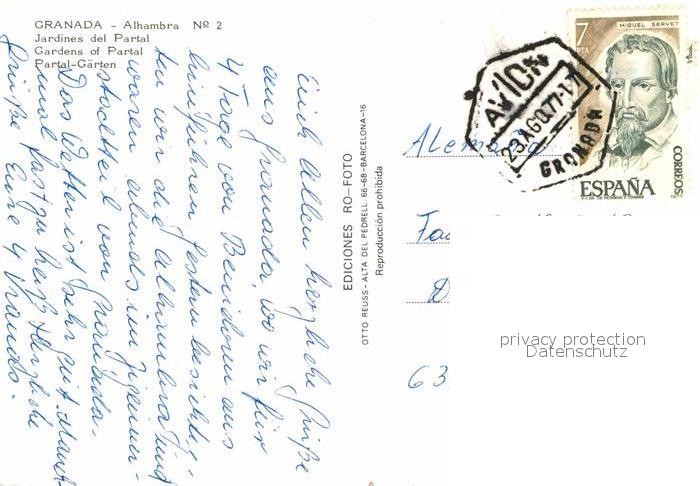 GRANADA - Alhambra Nº 2
Jardines del Partal
Gardens of Partal
Partal-Gärten
Euch allen herzliche Grüße
aus Granada, wo wir für
4 Tage von Benidorm aus
hinfuhren. Gestern besichtig-
ten wir die Alhambra und
waren abends im Zigeuner-
stadtteil von Granada.
Das Wetter ist sehr gut, manch-
mal fast zu heiß. Herzliche
Grüße Eure 4
EDICIONES RO-FOTO
OTTO REUSS-ALTA DEL PEDRELL, 66-68-BARCELONA-16
Reproducción prohibida
7
PTA
MIGUEL SERVET
CORREOS
ESPAÑA
1977
AVION
23 AGO. 77
GRANADA
Alemania
D
63
privacy protection
Datenschutz